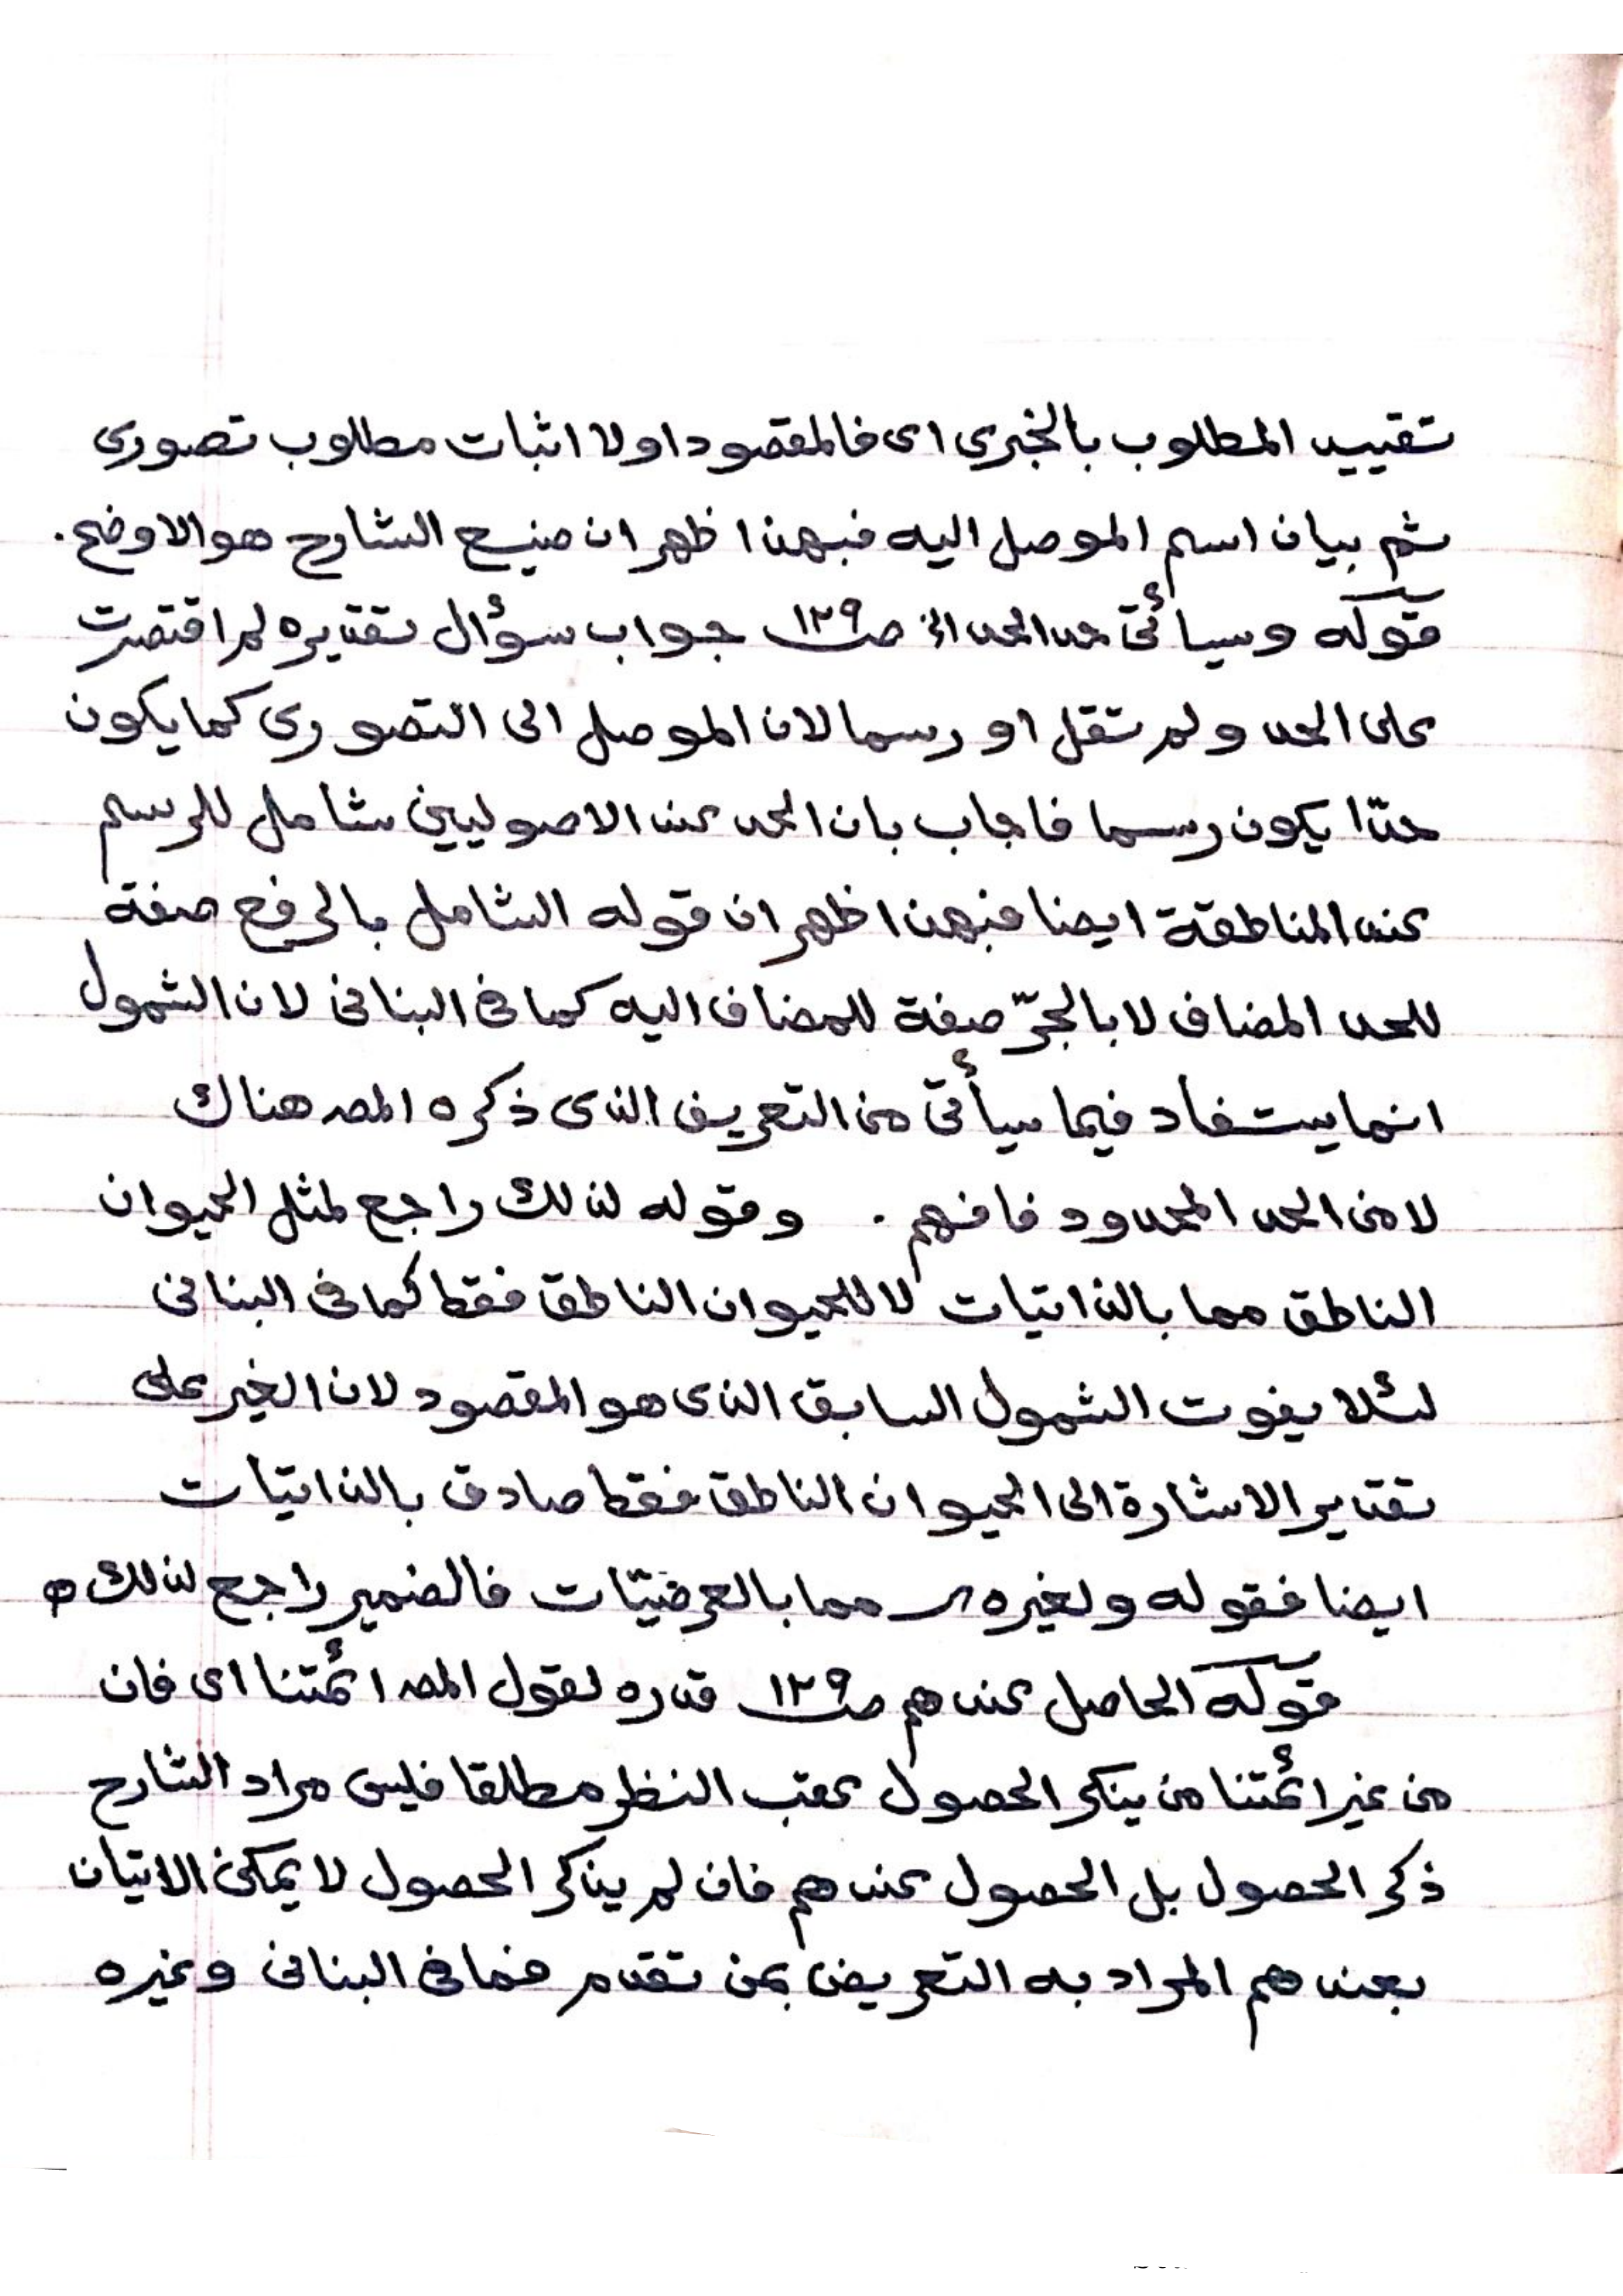 تقييد المطلوب بالخبرى اى فالمقصود اولا اثبات مطلوب تصورى
ثم بيان اسم الموصل اليه فبهذا ظهر ان صنيع الشارح هو الاوضح.
قوله وسيأتى حد الحد الخ صـ١٢٩ جواب سؤال تقديره لم اقتصرت
على الحد ولم تقل او رسما لان الموصل الى التصورى كما يكون
حدّا يكون رسما فاجاب بان الحد عند الاصوليين شامل للرسم
عند المناطقة ايضا فبهذا ظهر ان قوله الشامل بالرفع صفة
للحد المضاف لا بالجرّ صفة للمضاف اليه كما فى البنانى لان الشمول
انما يستفاد فيما سيأتى من التعريف الذى ذكره المصـ هناك
لا من الحد المحدود فافهم. وقوله لذلك راجع لمثل الحيوان
الناطق مما بالذاتيات لا للحيوان الناطق فقط كما فى البنانى
لئلا يفوت الشمول السابق الذى هو المقصود لان الغير على
تقدير الاشارة الى الحيوان الناطق فقط صادق بالذاتيات
ايضا فقوله ولغيره مما بالعرضيّات فالضمير راجع لذلك
قوله الحاصل عندهم صـ١٢٩ قدره لقول المصـ ائمتنا اى فان
من غير ائمتنا من ينكر الحصول عقب النظر مطلقا فليس مراد الشارح
ذكر الحصول بل الحصول عندهم فان لم يذكر الحصول لا يمكن الاتيان
بعندهم المراد به التعريض بمن تقدم فما فى البنانى وغيره